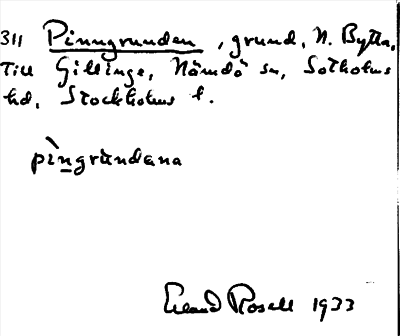 311 Pinngrunden, grund, N. Bytta,
Till Gillinge, Nämdö sn, Sotholms
hd, Stockholms l.
pìngrùndəna
Erland Rosell 1933